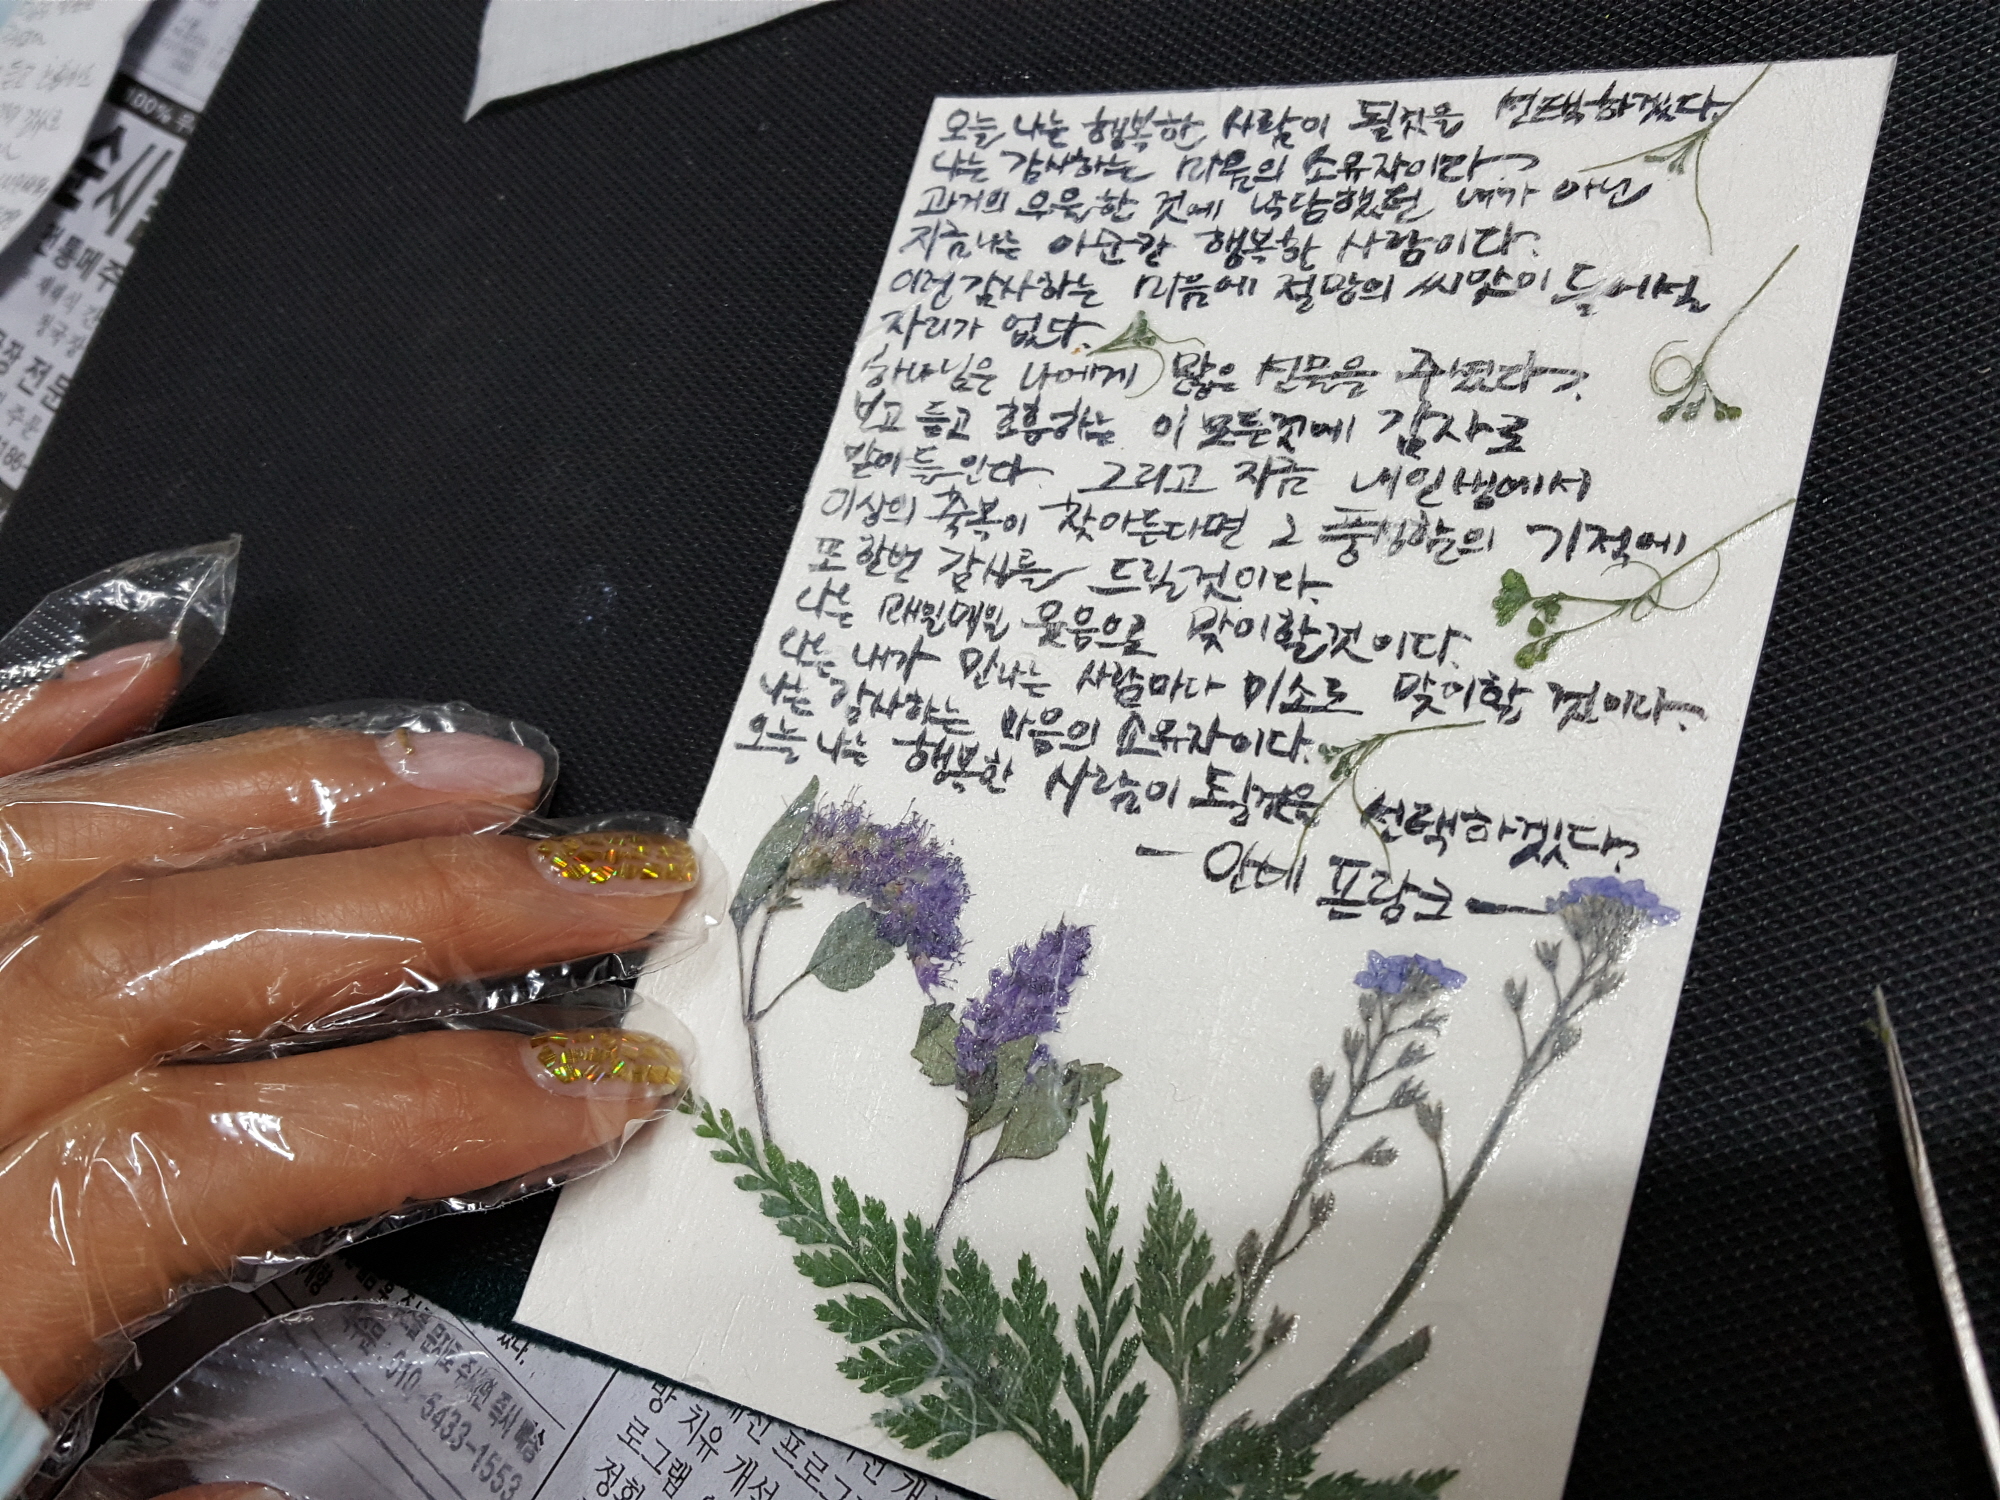 오늘 나는 행복한 사람이 될것을 선택하겠다.
나는 감사하는 마음의 소유자이다.
과거의 우울한 것에 낙담했던 내가 아닌
지금나는 이순간 행복한 사람이다.
이런감사하는 마음에 절망의 씨앗이 들어설
자리가 없다.
하나님은 나에게 많은 선물을 주셨다.
보고 듣고 호흡하는 이 모든것에 감사로
받아들인다. 그리고 지금 내인생에서
이상의 축복이 찾아든다면 그 풍성함의 기적에
또 한번 감사를 드릴것이다.
나는 매일매일 웃음으로 맞이할것이다.
나는 내가 만나는 사람마다 미소로 맞이할 것이다.
나는 감사하는 마음의 소유자이다.
오늘 나는 행복한 사람이 될것을 선택하겠다.
- 안네 프랑크 -
100%
전통메주
장 전문
문자로 주시면 즉시 배송
010-5433-1553
망 치유 개선 프로그
로그램